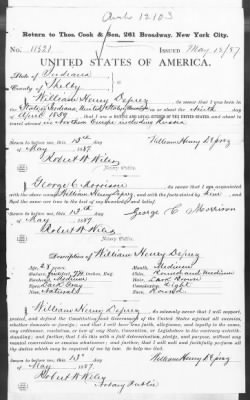 12103
Return to Thos. Cook & Son, 261 Broadway, New York City.
No. 11521 ISSUED May 16/87
UNITED STATES OF AMERICA.
State of Indiana
County of Shelby
I, William Henry Deprez, do swear that I was born in the
State of Indiana, United States, on or about the Ninth day
of April 1859; that I am a NATIVE AND LOYAL CITIZEN OF THE UNITED STATES, and about to
travel abroad in Northern Europe including Russia
Sworn to before me, this 13th day William Henry Deprez
of May 1887.
Robert W. Wiles
Notary Public.
I, George C. Morrison, do swear that I am acquainted
with the above named William Henry Deprez, and with the facts stated by him and
that the same are true to the best of my knowledge and belief.
Sworn to before me, this 13th day George C. Morrison
of May 1887.
Robert W. Wiles
Notary Public.
Description of William Henry Deprez
Age, 28 years. Mouth, Medium
Stature, Inches, Eng. Chin, Round and Medium
Forehead, Medium Hair, Dark Brown
Eyes, Dark Gray Complexion, Light
Nose, Natural Face, Round
I, William Henry Deprez, do solemnly swear that I will support,
protect, and defend the Constitution and Government of the United States against all enemies,
whether domestic or foreign; and that I will bear true faith, allegiance, and loyalty to the same,
any ordinance, resolution, or law of any State, Convention, or Legislature to the contrary notwith-
standing; and further, that I do this with a full determination, pledge, and purpose, without any
mental reservation or evasion whatsoever; and further, that I will well and faithfully perform all
the duties which may be required of me by law. So help me God.
Sworn to before me, this 13th day William Henry Deprez
of May 1887.
Robert W. Wiles
Notary Public